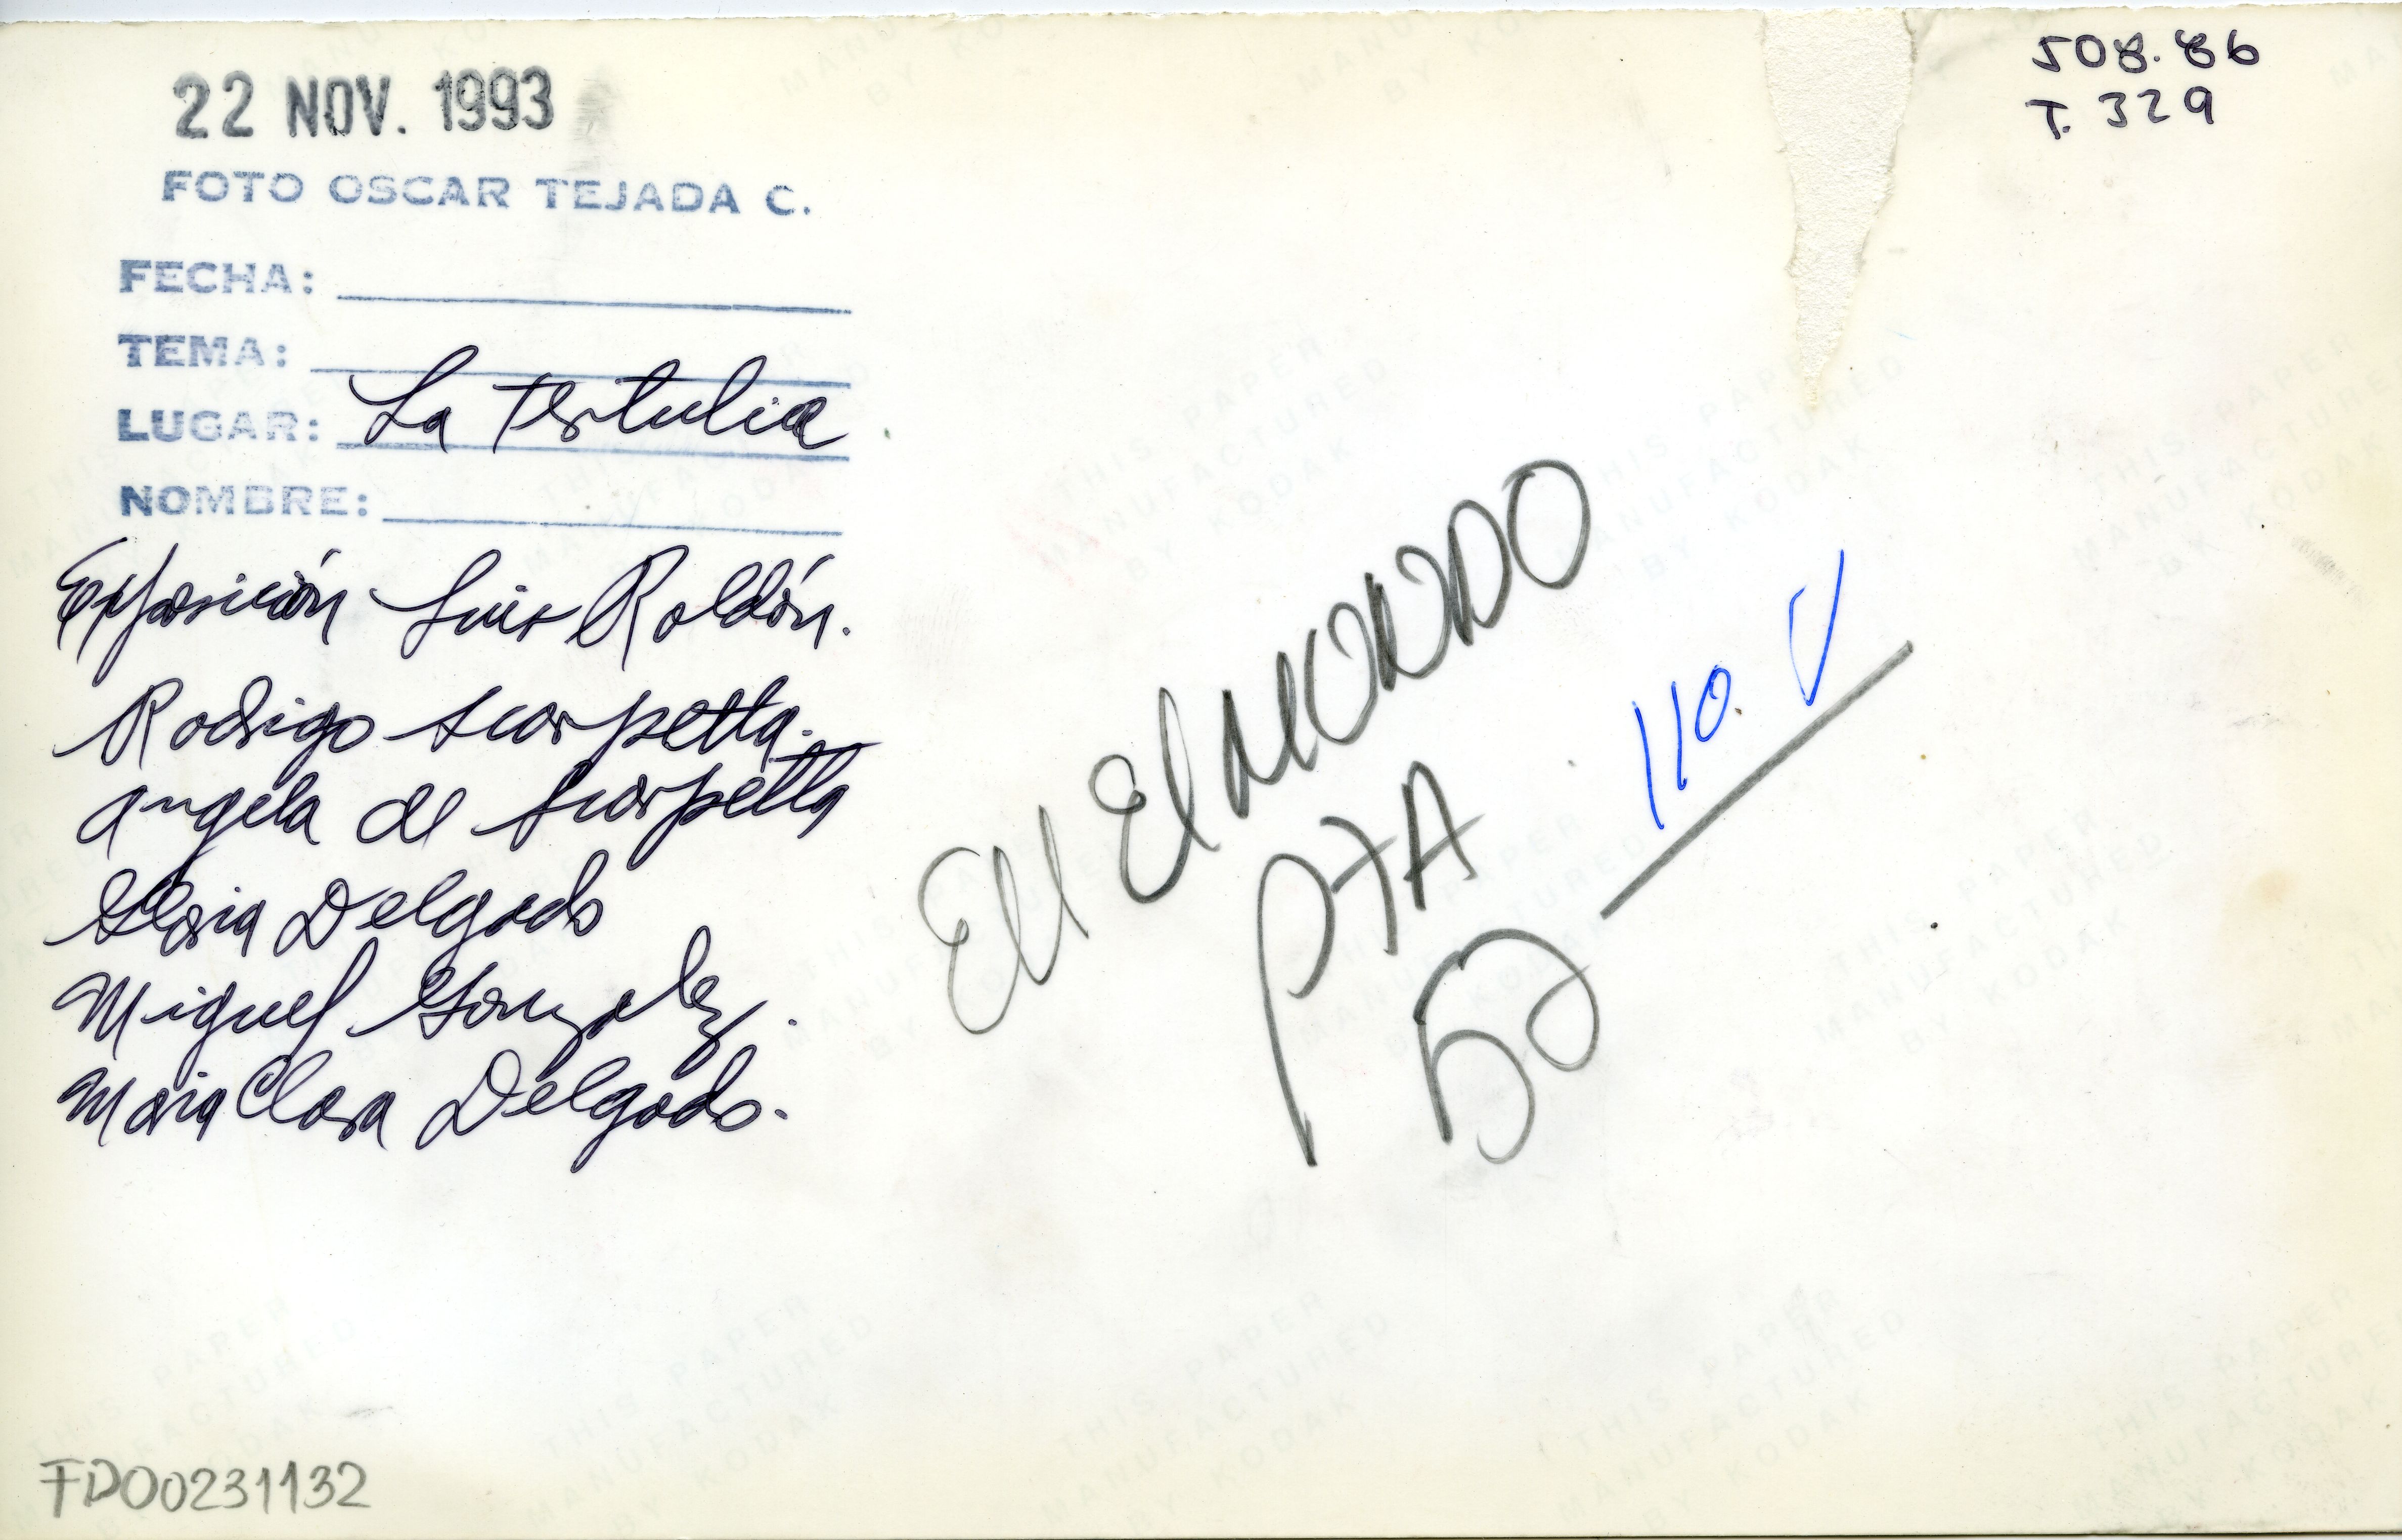 22 NOV. 1993
FOTO OSCAR TEJADA C.
FECHA:
TEMA:
LUGAR: La Tertulia
NOMBRE:
Exposición Luis Roldán.
Rodrigo Scarpetta.
Angela de Scarpetta
Gloria Delgado
Miguel Gonzalez.
Maria Clara Delgado.
508.86
T. 329
PTA
110. V
FD00231132
THIS PAPER
MANUFACTURED
BY KODAK